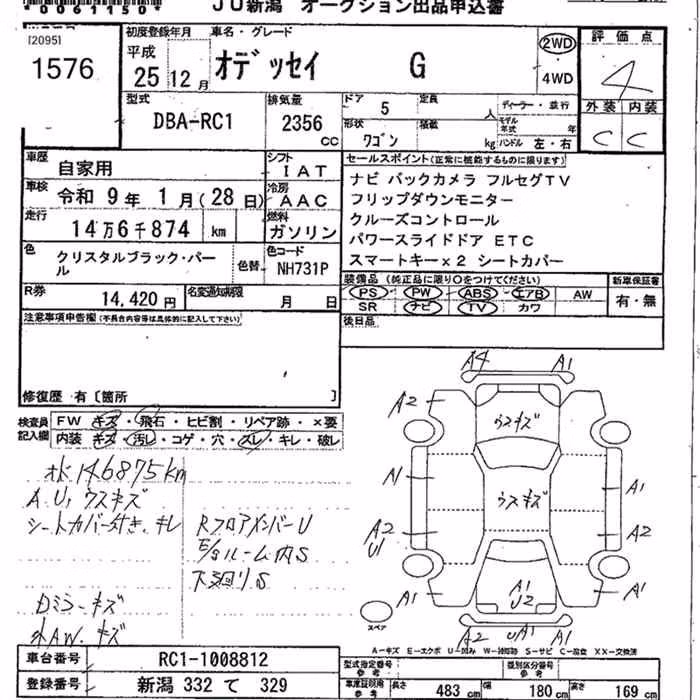 *0061150*
JU新潟 オークション出品申込書
[2095]
1576
初度登録年月
平成
25 12月
車名・グレード
オデッセイ G
2WD
4WD
評価点
4
外装 内装
C C
型式
DBA-RC1
排気量
2356
CC
ドア 5
定員
人
形状 ワゴン
積載
kg
ディーラー・並行
モデル年式 年
ハンドル 左・右
車歴 自家用
シフト IAT
車検 令和 9年 1月(28日)
冷房 AAC
走行 14万6千874 km
燃料 ガソリン
色 クリスタルブラック・パール
色替
色コード NH731P
R券 14,420円
名変通知期限 月 日
セールスポイント(正常に機能するものに限ります)
ナビ バックカメラ フルセグTV
フリップダウンモニター
クルーズコントロール
パワースライドドア ETC
スマートキーx2 シートカバー
装備品 (純正品に限り○をつけてください)
PS PW ABS エアB AW
SR ナビ TV カワ
新車保証書
有・無
後日品
注意事項申告欄(不具合内容等は具体的に記入して下さい)
修復歴 有〔箇所 〕
検査員記入欄
FW キズ・飛石・ヒビ割・リペア跡・×要
内装 キズ・汚レ・コゲ・穴・スレ・キレ・破レ
146875km
A.U,ウスキズ
シートカバー付き.キレ
RフロアメンバーU
E/gルーム内S
下廻りS
Dミラーキズ
AW.キズ
A4 A1
A2
ウスキズ
A1
ウスキズ
A1
A2
U1
A2
A1
A1
U2
A1
スペア
A2 UA1 A1
A-キズ E-エクボ U-凹み W-補修跡 S-サビ C-腐食 XX-交換済
車台番号 RC1-1008812
登録番号 新潟 332 て 329
型式指定番号
参考
類別区分番号
参考
車庫証明用
参考
長さ 483 cm
幅 180 cm
高さ 169 cm